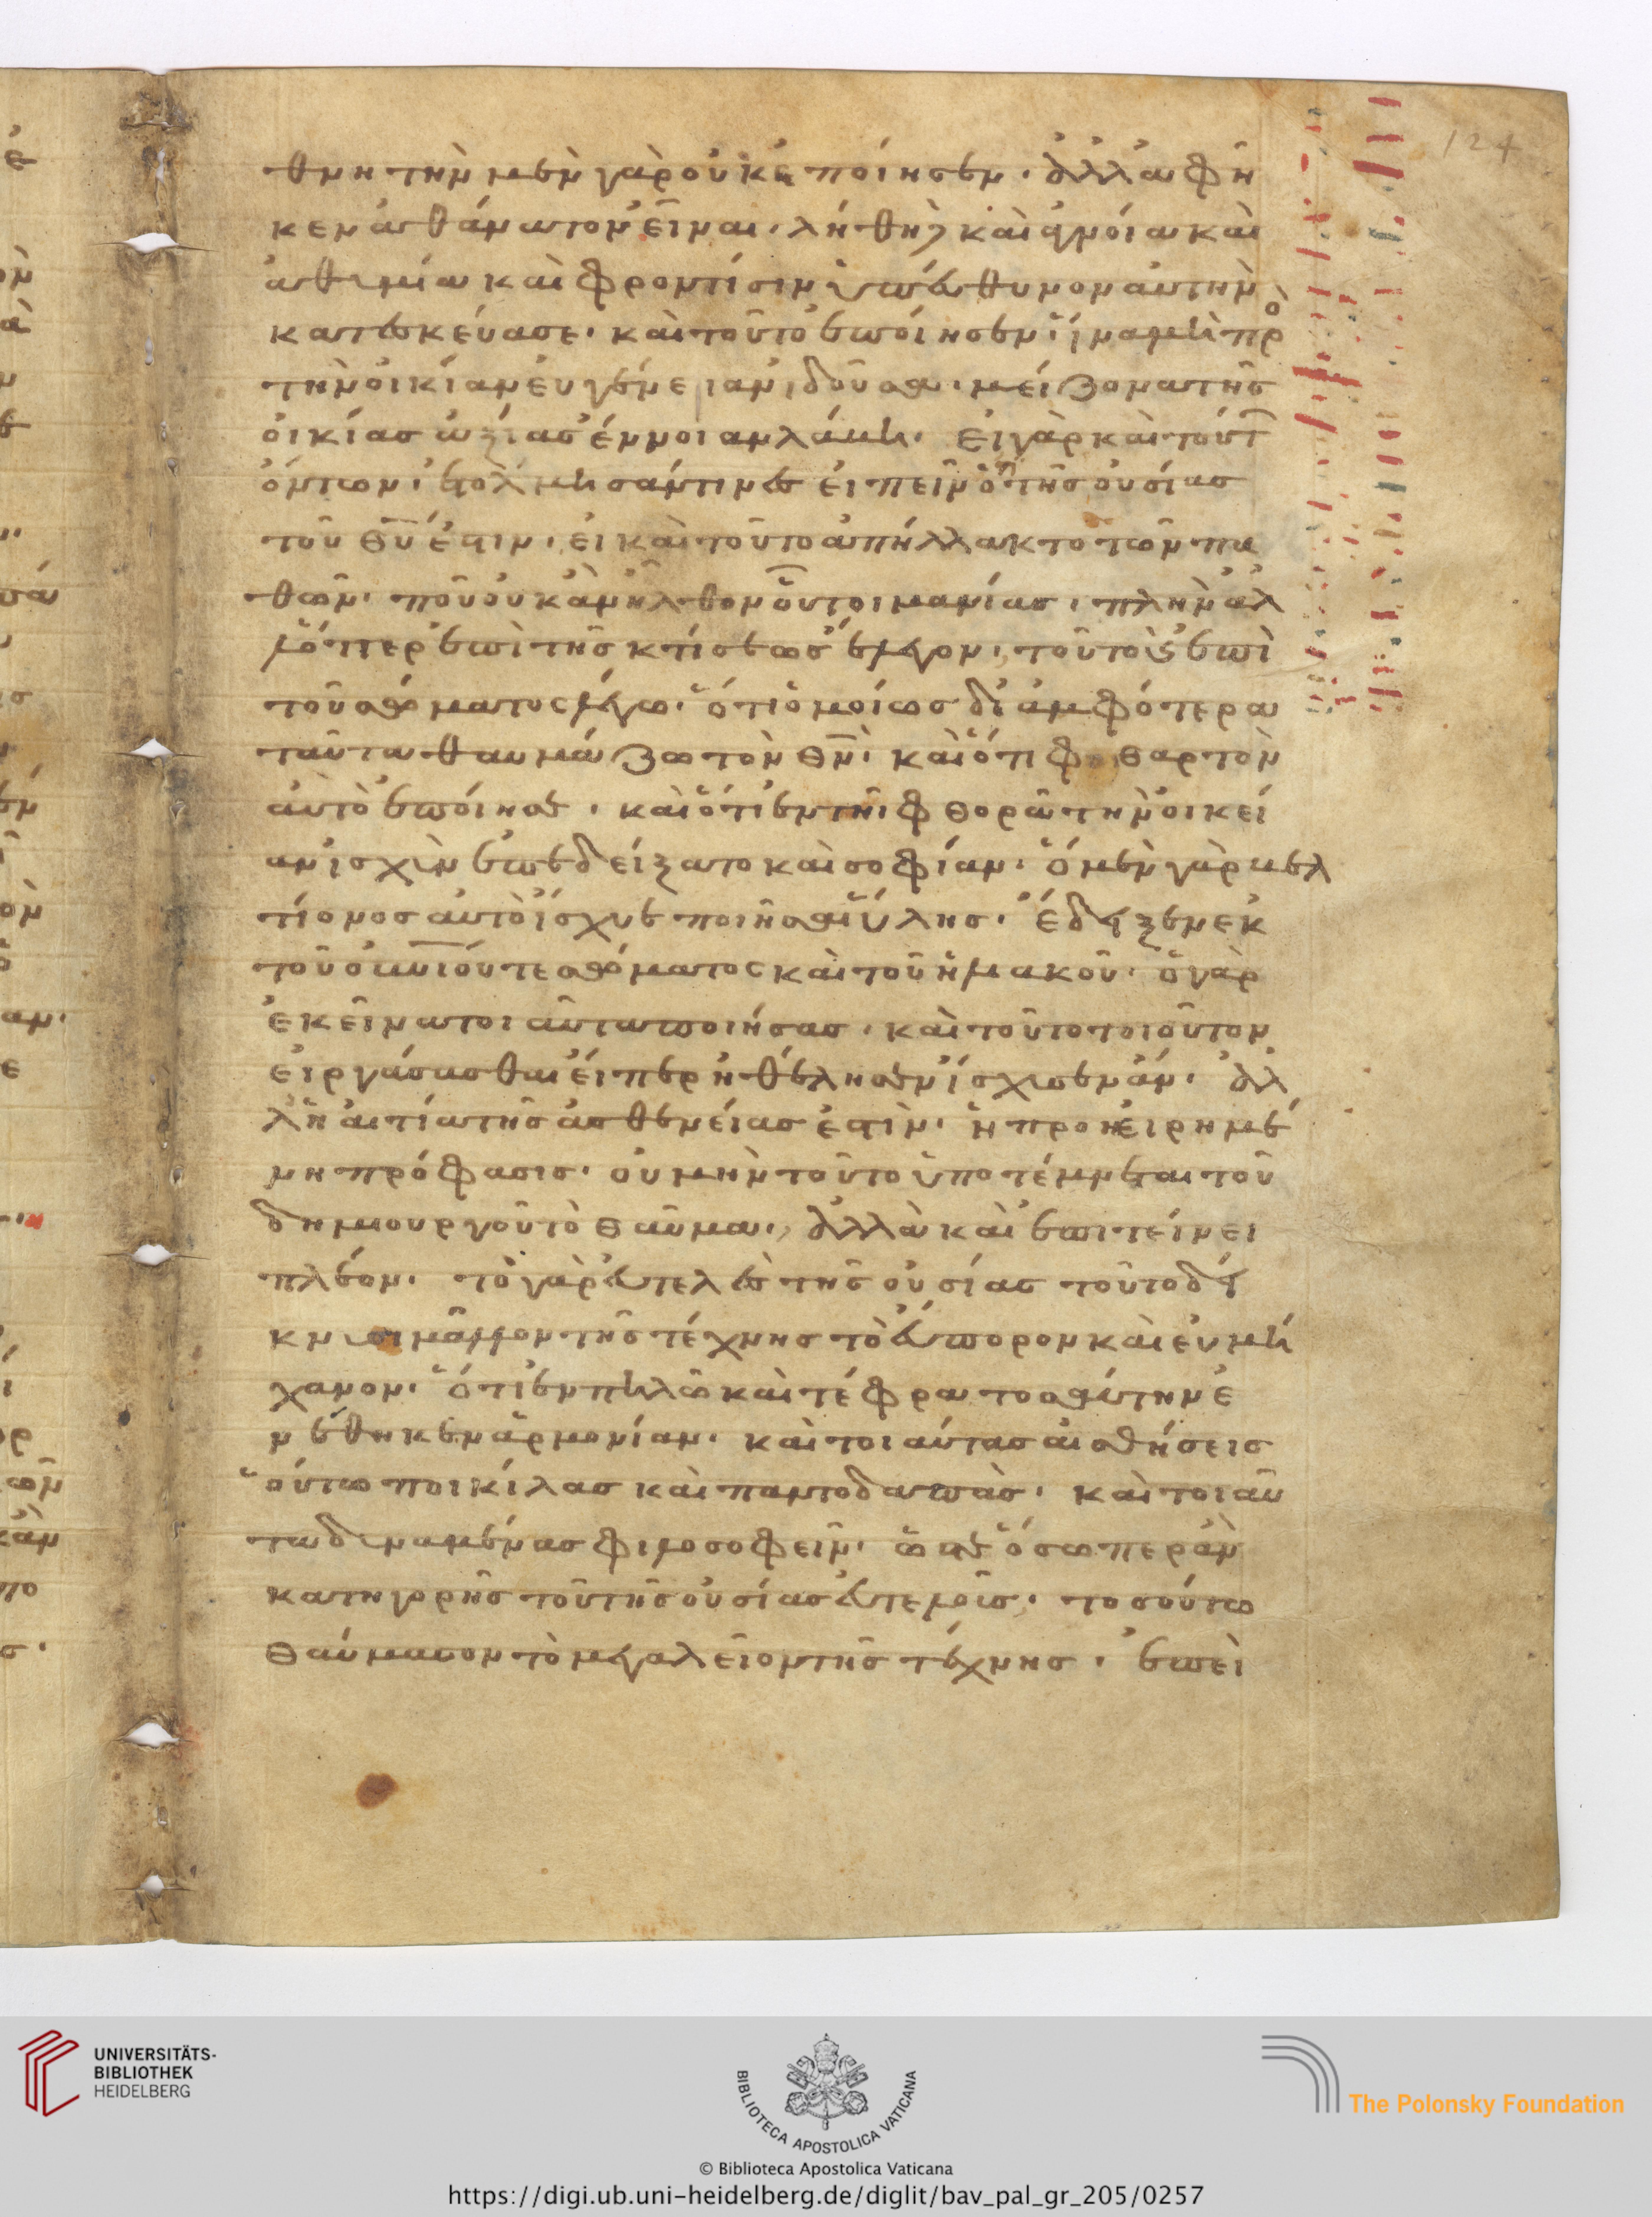 θνητὴν μὲν γὰρ οὐκ ἐποίησεν· ἀλλ' ἀφῆ
κεν ἀθάνατον εἶναι· λήθηι καὶ ἀγνοία καὶ
ἀθυμία καὶ φροντίσιν ὑπεύθυνον αὐτὴν
κατεσκεύασε· καὶ τοῦτο ἐποίησεν ἵνα μὴ πρὸ
τὴν οἰκίαν εὐγένειαν ἰδοῦσα· μείζονα τῆς
οἰκίας ἀξίας ἔννοιαν λάβη· εἰ γὰρ καὶ τούτ
ὄντων· ἐτόλμησάν τινες εἰπεῖν ὅτι τῆς οὐσίας
τοῦ θυ ἐστιν· εἰ καὶ τοῦτο ἀπήλλακτο τῶν πα
θῶν· ποῦ οὐκ ἂν ἦλθον οὗτοι μανίας· πλὴν ἀλ
λ' ὅπερ ἐπὶ τῆς κτίσεως ἔλεγον· τοῦτο καὶ ἐπὶ
τοῦ σώματος λέγω· ὅτι ὁμοίως δι' ἀμφότερα
ταῦτα θαυμάζω τὸν θν· καὶ ὅτι φθαρτὸν
αὐτὸ ἐποίησε· καὶ ὅτι ἐν τῆι φθορᾶ τὴν οἰκεί
αν ἰσχὺν ἐπεδείξατο καὶ σοφίαν· ὅ μὲν γὰρ βελ
τίονος αὐτὸ ἴσχυε ποιῆσαι ὕλης· ἔδειξεν ἐκ
τοῦ οὐνίου τε σώματος καὶ τοῦ ἡλιακοῦ· ὁ γὰρ
ἐκεῖνα τοιαῦτα ποιήσας· καὶ τοῦτο τοιοῦτον
εἰργάσασθαι εἴπερ ἠθέλησεν ἴσχυσεν ἄν· ἀλ
λ' ἡ αἰτία τῆς ἀσθενείας ἐστὶν· ἡ προειρημέ
νη πρόφασις· οὐ μὴν τοῦτο ὑποτέμνεται τοῦ
δημιουργοῦ τὸ θαῦμα· ἀλλὰ καὶ ἐπιτείνει
πλέον· τὸ γὰρ εὐτελὲς τῆς οὐσίας τοῦτο δεί
κνυσι μᾶλλον τῆς τέχνης τὸ εὔπορον καὶ εὐμή
χανον· ὅτι ἐν πηλῶ καὶ τέφρα τοσαύτην ἐ
νέθηκεν ἁρμονίαν· καὶ τοιαύτας αἰσθήσεις
οὕτω ποικίλας καὶ παντοδαπὰς· καὶ τοιαῦ
τα δυναμένας φιλοσοφεῖν· ὥστε ὅσω περ ἂν
κατηγορῆς τοῦ τῆς οὐσίας εὐτελοῦς· τοσούτω
θαύμασον τὸ μεγαλεῖον τῆς τέχνης· ἐπεὶ
124
UNIVERSITÄTS-
BIBLIOTHEK
HEIDELBERG
BIBLIOTECA APOSTOLICA VATICANA
The Polonsky Foundation
© Biblioteca Apostolica Vaticana
https://digi.ub.uni-heidelberg.de/diglit/bav_pal_gr_205/0257